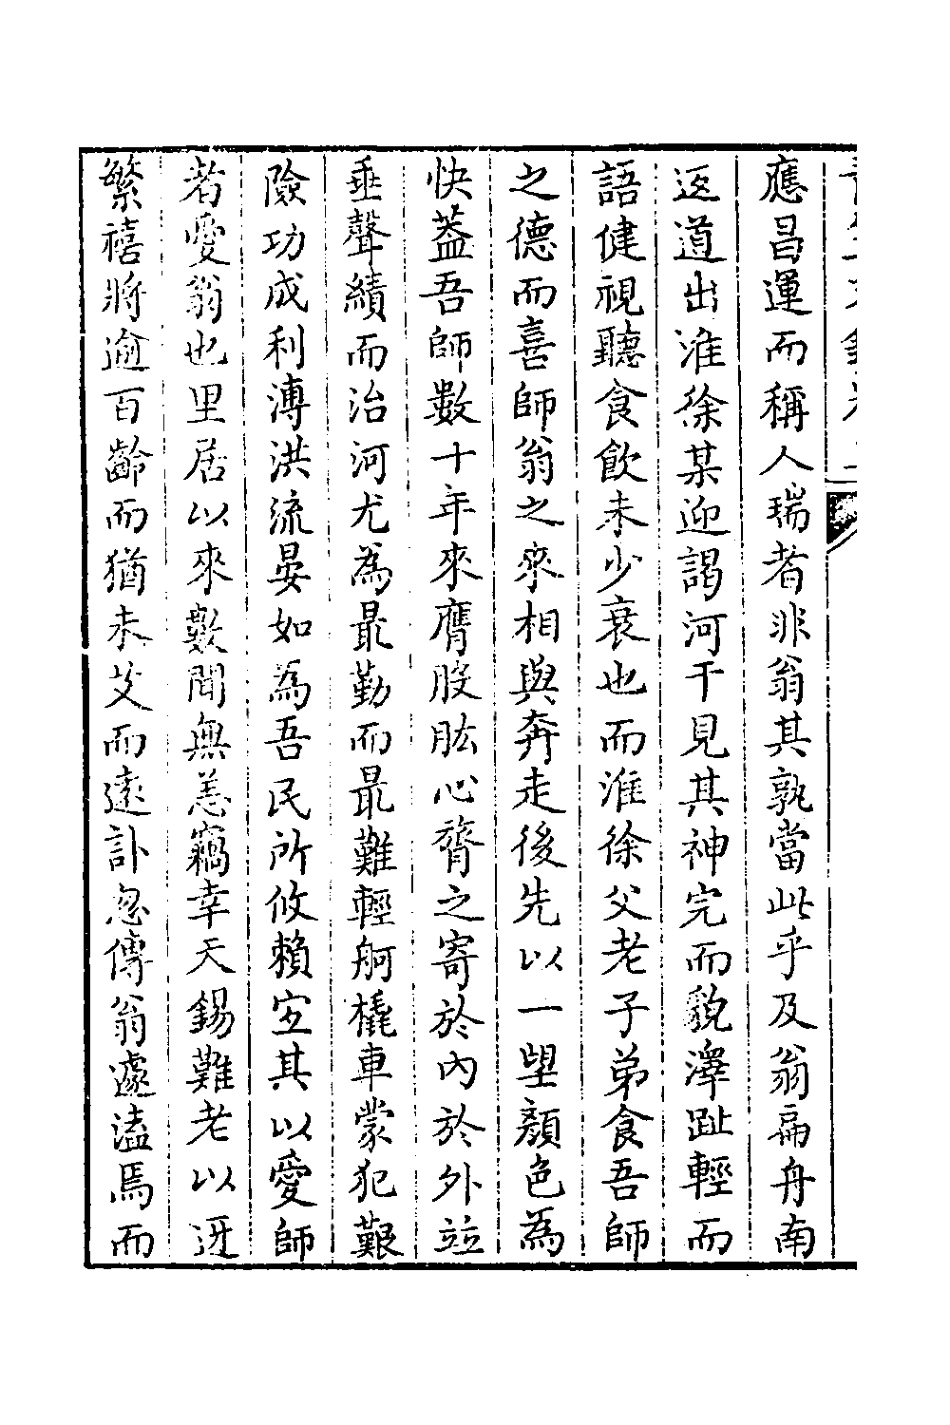 應昌運而稱人瑞者非翁其孰當此乎及翁扁舟南
返道出淮徐某迎謁河干見其神完而貌澤趾輕而
語健視聽食飲未少衰也而淮徐父老子弟食吾師
之德而喜師翁之來相與奔走後先以一望顏色為
快葢吾師數十年來膺股肱心膂之寄於內於外竝
垂聲績而治河尤為最勤而最難輕舸橇車蒙犯艱
險功成利溥洪流晏如為吾民所攸賴宐其以愛師
者愛翁也里居以來數聞無恙竊幸天錫難老以迓
繁禧將逾百齡而猶未艾而遠訃忽傳翁遽溘焉而